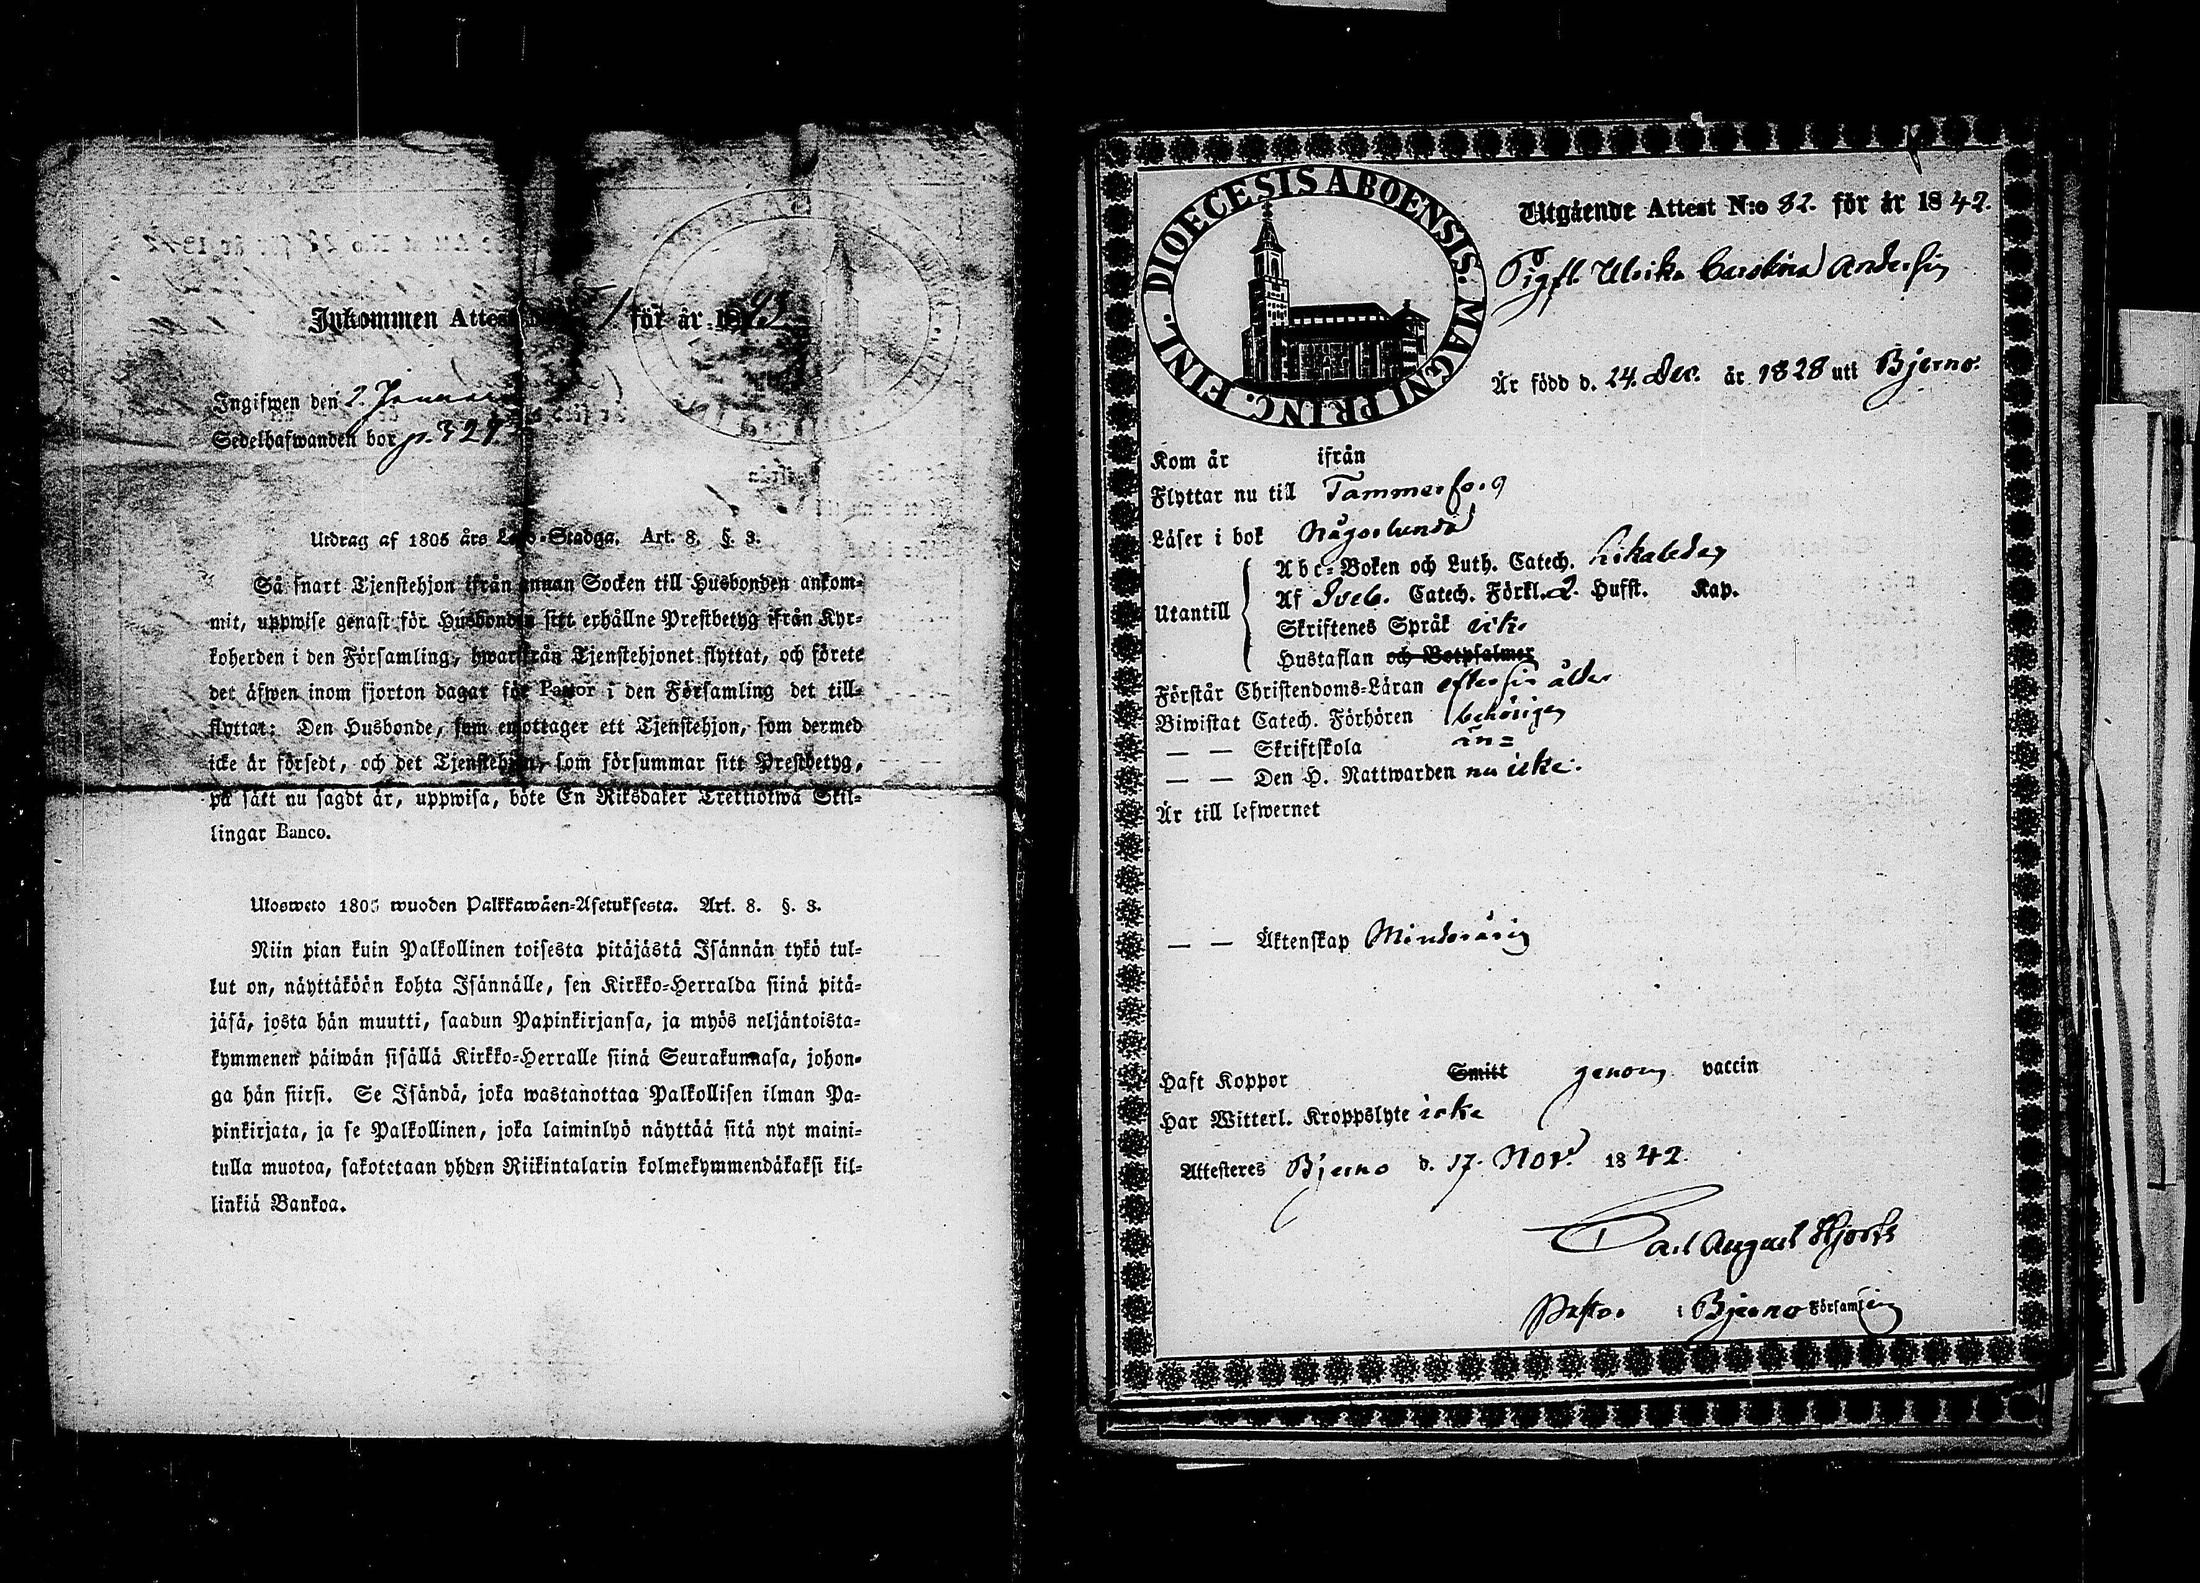 Inkommen Attest för år 1843
Ingifwen den 2. Januari
Sedelhafwanden bor p. 327.
Utdrag af 1805 års Lego-Stadga. Art. 8. §. 3.
Så snart Tjenstehjon ifrån annan Socken till Husbonden ankom-
mit, uppwise genast för Husbonden sitt erhållne Prestbetyg ifrån Kyr-
koherden i den Församling, hwarifrån Tjenstehjonet flyttat, och förete
det äfwen inom fjorton dagar för Pastor i den Församling det till-
flyttat: Den Husbonde, som emottager ett Tjenstehjon, som dermed
icke är försedt, och det Tjenstehjon, som försummar sitt Prestbetyg,
på sätt nu sagdt är, uppwisa, böte En Riksdaler Trettiotwå Skil-
lingar Banco.
Ulosweto 1805 wuoden Palkkawäen-Asetuksesta. Art. 8. §. 3.
Niin pian kuin Palkollinen toisesta pitäjästä Isännän tykö tul-
lut on, näyttäköön kohta Isännälle, sen Kirkko-Herralda siinä pitä-
jäsä, josta hän muutti, saadun Papinkirjansa, ja myös neljäntoista-
kymmenen päiwän sisällä Kirkko-Herralle siinä Seurakunnasa, johon-
ga hän siirsi. Se Isändä, joka wastanottaa Palkollisen ilman Pa-
pinkirjata, ja se Palkollinen, joka laiminlyö näyttää sitä nyt maini-
tulla muotoa, sakotetaan yhden Riikintalarin kolmekymmendäkaksi kil-
linkiä Bankoa.
DIOECESIS ABOENSIS. MAGNI PRINC. FINL.
Utgående Attest N:o 82. för år 1842.
Pigfl. Ulrika Carolina Andersin
Är född d. 24. Dec. år 1828 uti Bjerno.
Kom år ifrån
Flyttar nu till Tammerfors
Läser i bok Någorlunda
Utantill
Abc-Boken och Luth. Catech. likaledes
Af Sveb. Catech. Förkl. 2. Hufst. Kap.
Skriftenes Språk icke
Hustaflan och Botpsalmer
Förstår Christendoms-Läran efter sin ålder
Biwistat Catech. Förhören behörigen
— — Skriftskola än=
— — Den H. Nattwarden nu icke.
Är till lefwernet
— — Äktenskap Minderårig
Haft Koppor Smitt genom vaccin
Har Witterl. Kroppslyte icke
Attesteres Bjerno d. 17. Nov. 1842.
Carl August Hjorth
Pastor i Bjerno Församling